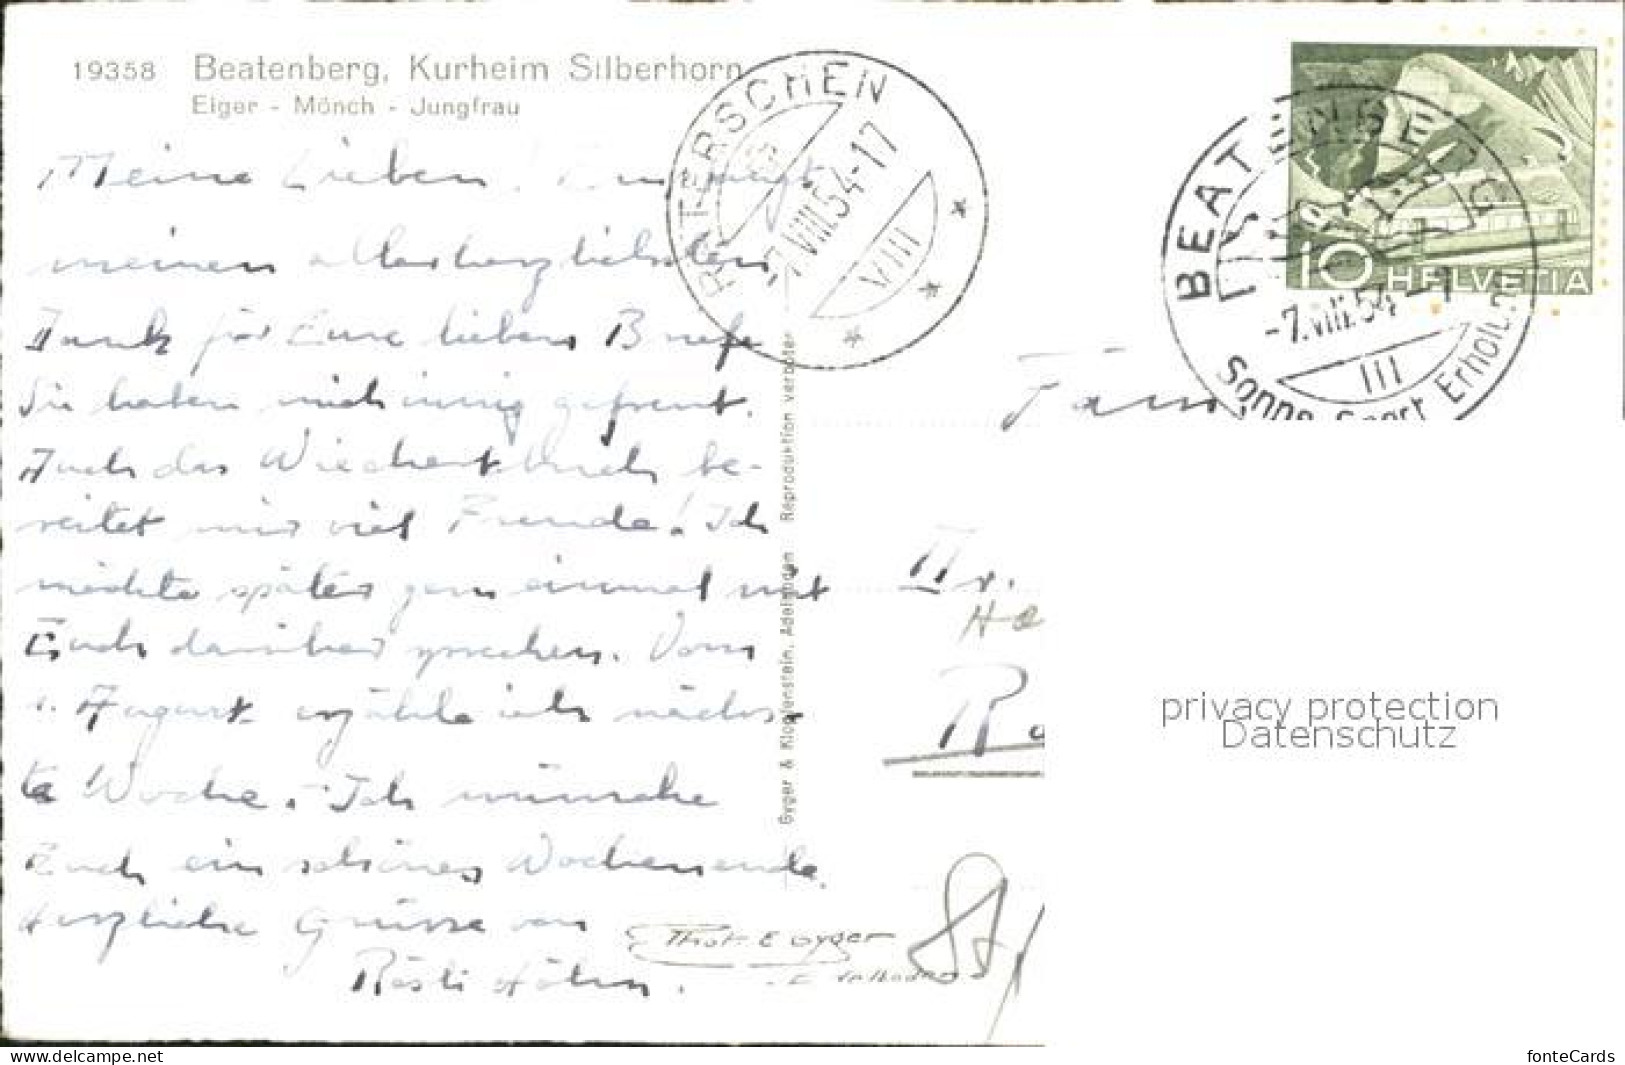 19358 Beatenberg, Kurheim Silberhorn
Eiger - Mönch - Jungfrau
Meine Lieben!
meinen allerherzlichsten
Dank für Eure lieben Briefe
Sie haben mich innig gefreut.
Auch das Wiechert-buch be-
reitet mir viel Freude! Ich
möchte später gern einmal mit
Euch darüber sprechen. Vom
1. August erzähle ich nächs-
te Woche. Ich wünsche
Euch ein schönes Wochenende.
Herzliche Grüsse von
Rösli
Phot. E. Gyger
Adelboden
Gyger & Klopfenstein, Adelboden Reproduktion verboten
-7.VIII.54-17
VIII
BEATENBERG
-7.VIII.54-
III
Sonne Sport Erholung
10 HELVETIA
Fam.
privacy protection
Datenschutz
www.delcampe.net
fonteCards